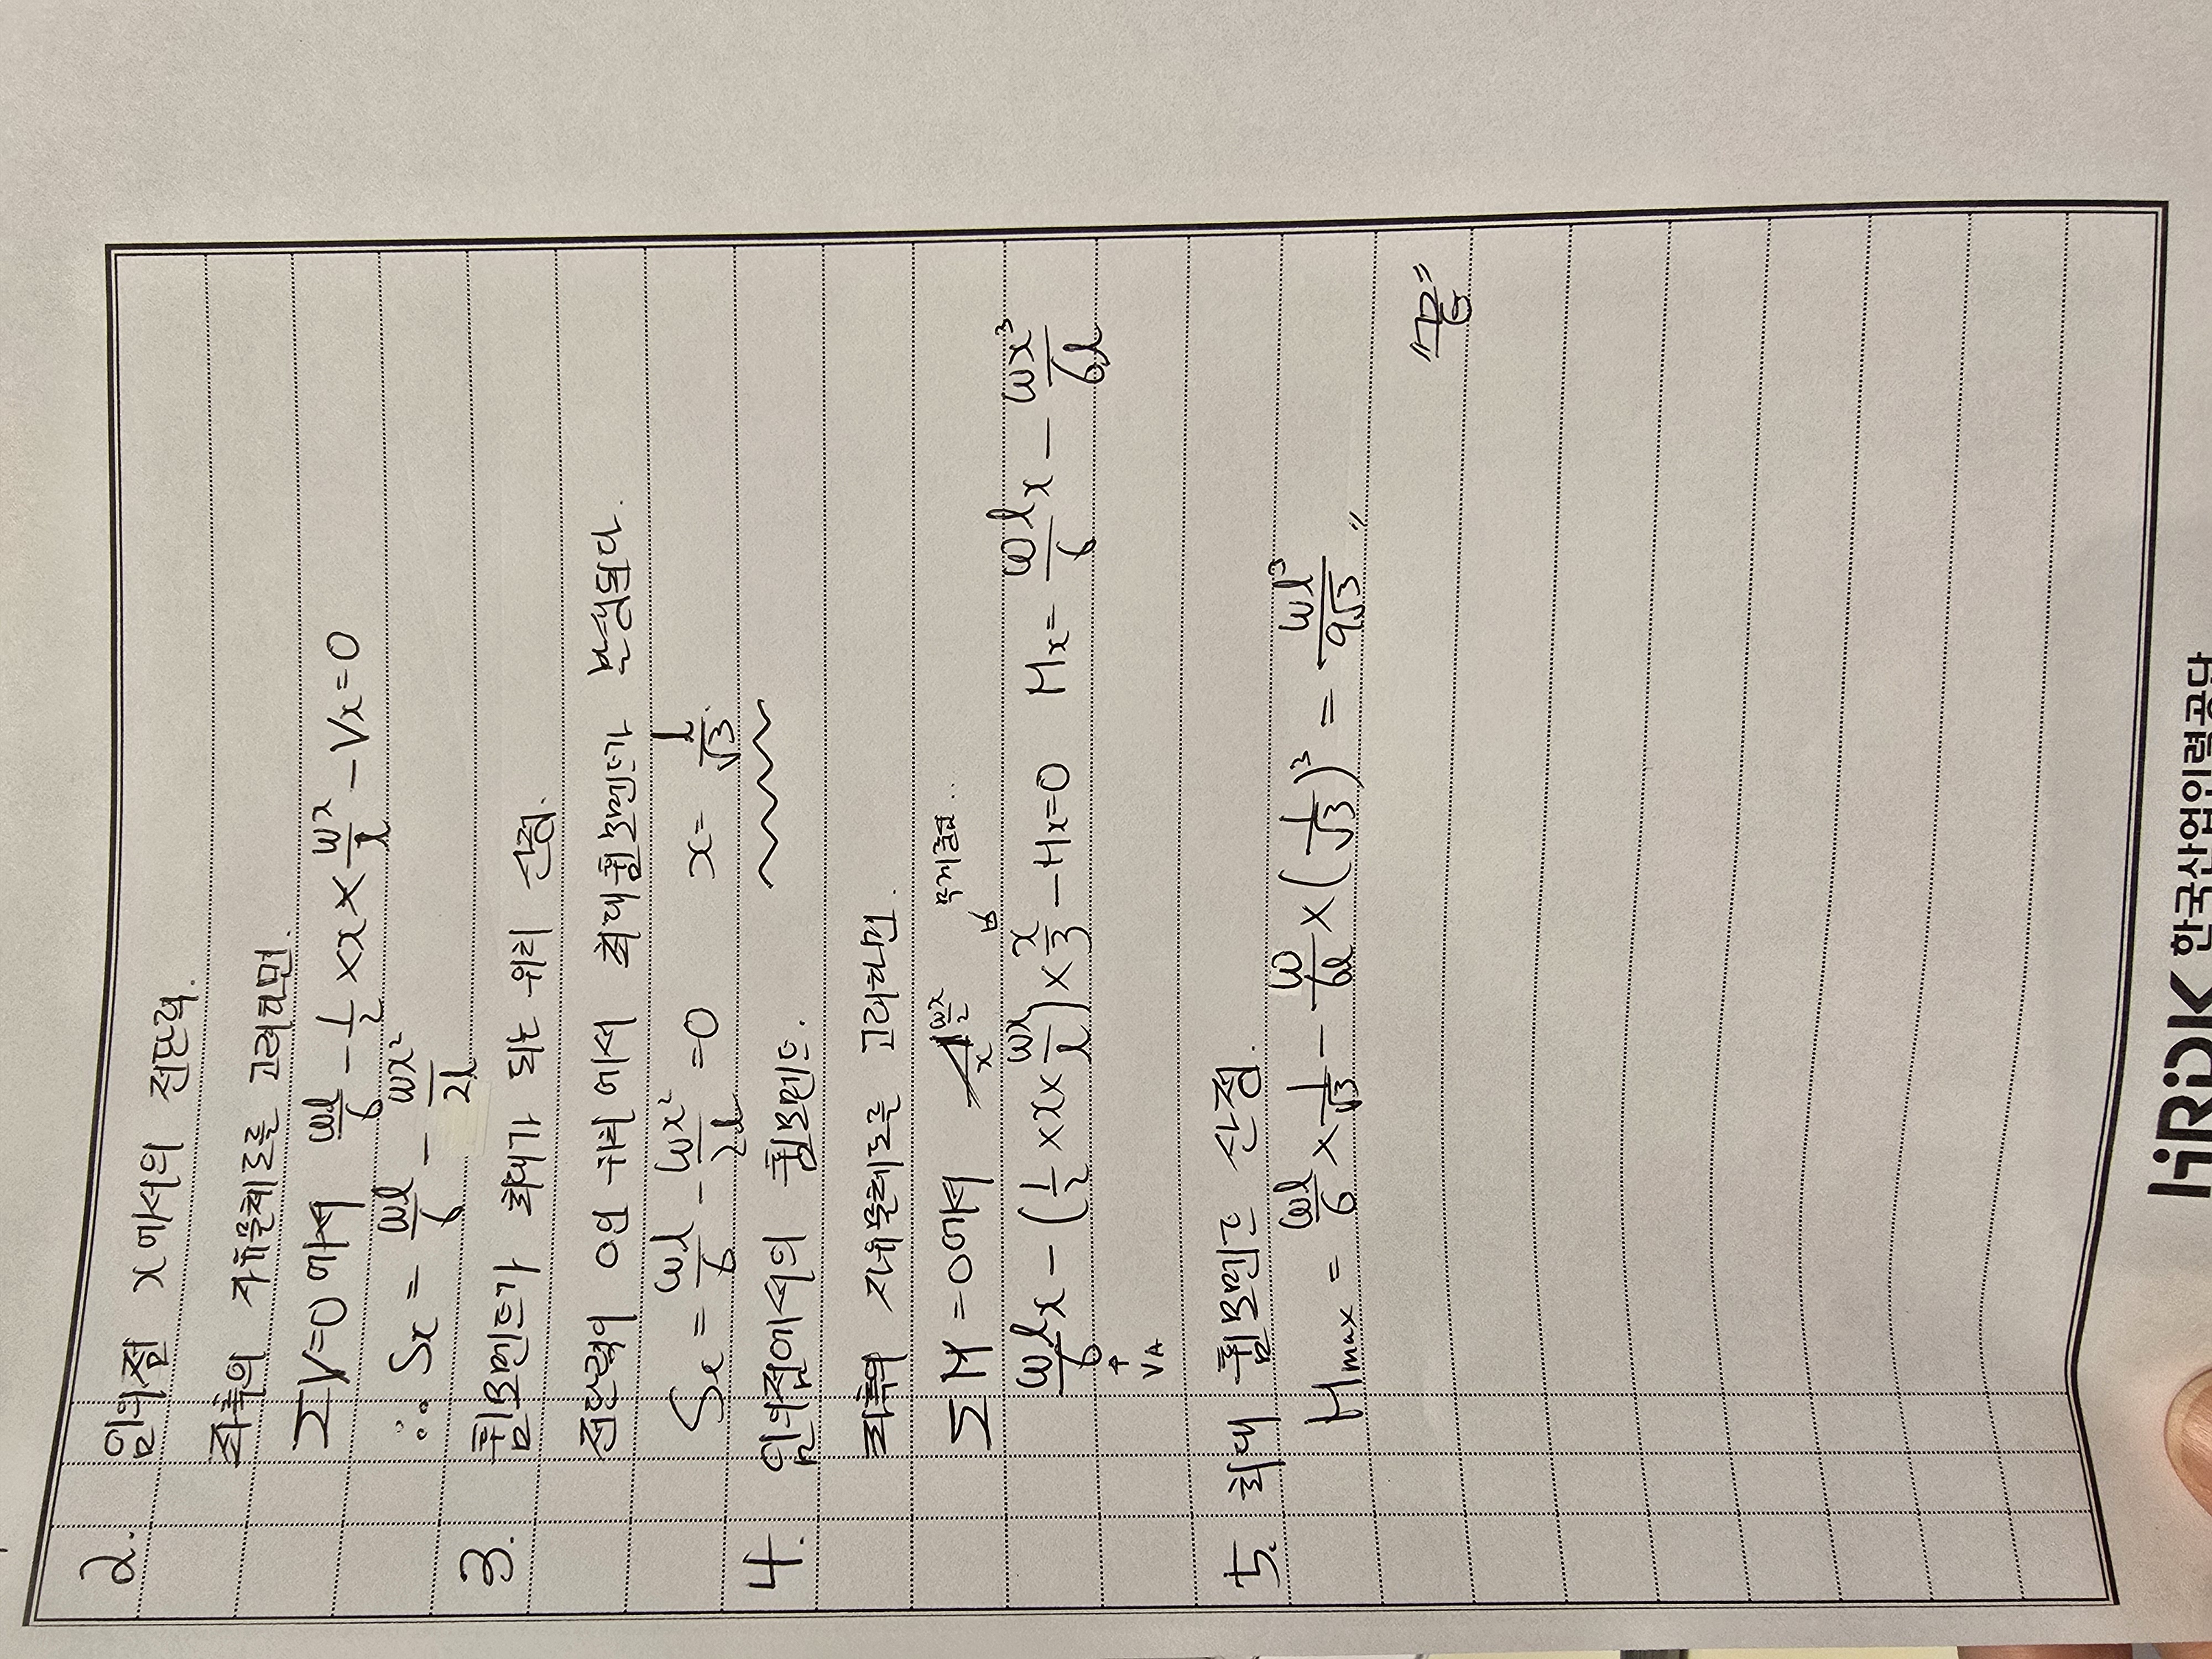 2. 임의점 x에서의 전단력.
좌측의 자유물체도를 고려하면.
ΣV=0에서 wl/6 - 1/2 × x × wx/l - Vx = 0
∴ Sx = wl/6 - wx²/2l
3. 휨모멘트가 최대가 되는 위치 산정.
전단력이 0인 위치에서 최대휨모멘트가 발생된다.
Sx = wl/6 - wx²/2l = 0 x = l/√3.
4. 임의점에서의 휨모멘트.
좌측의 자유물체도를 고려하면
ΣM=0에서 x wx/l
wl/6 x - (1/2 × x × wx/l) × x/3 - Mx = 0 Mx = wl/6 x - wx³/6l
↑
VA
5. 최대 휨모멘트 산정.
Mmax = wl/6 × l/√3 - w/6l × (l/√3)³ = wl³/9√3 〃
"끝"
HRDK 한국산업인력공단